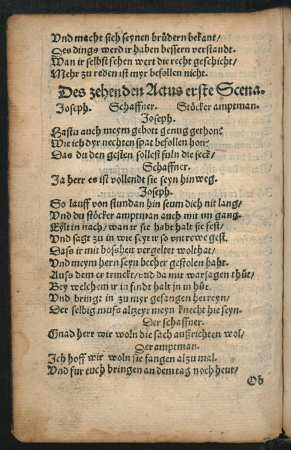 Vnd macht sich seynen brüdern bekant/
Des dings werd ir haben bessern verstandt.
Wan ir selbst sehen wert die recht geschicht/
Mehr zu reden ist myr befollen nicht.
Des zehenden Actus erste Scena.
Joseph. Schaffner. Stöcker amptman.
Joseph.
Hastu auch meym gebott genug gethon?
Wie ich dyr nechten spat befollen hon?
Das du den gesten sollest fuln die seck/
Schaffner.
Ja herr es ist vollendt sie seyn hinweg.
Joseph.
So lauff von stundan hin seum dich nit lang/
Vnd du stöcker amptman auch mit im gang.
Eylt in nach/ wan ir sie habt halt sie fest/
Vnd sagt zu in wie seyt ir so vntrewe gest.
Das ir mit boßheit vergeltet wolthat/
Vnd meym hern seyn becher gestolen hatt.
Auß dem er trinckt/ vnd da mit warsagen thut/
Bey welchem ir in findt halt jn in hut.
Vnd bringt in zu myr gefangen hereyn/
Der selbig muß altzeyt meyn knecht hie seyn.
Der schaffner.
Gnad herr wir woln die sach außrichten wol/
Der amptman.
Ich hoff wir woln sie fangen alzu mal.
Vnd fur euch bringen an dem tag noch heut/
Ob